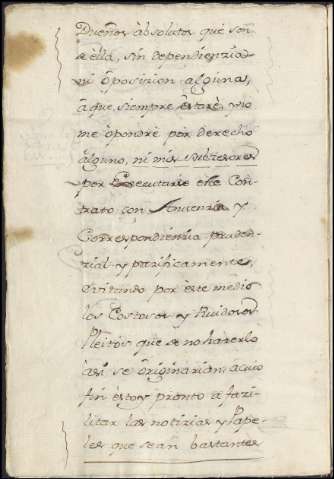 Dueños absolutos que son
de èlla, sin dependienzia
ni òposizion alguna,
à que siempre èstarè, y no
me òpondrè por derecho
alguno, ni mis subzesores
por Executarse este Con-
trato con Anuenzia y
Correspondienzia pruden-
zial y pazificamente,
Evitando por este medio
los Costosos y Ruidosos
Pleitos que se no hazerlo
asi se originarian, a cuio
fin èstoy pronto a fazi-
litar las notizias y Pape-
les que sean bastantes